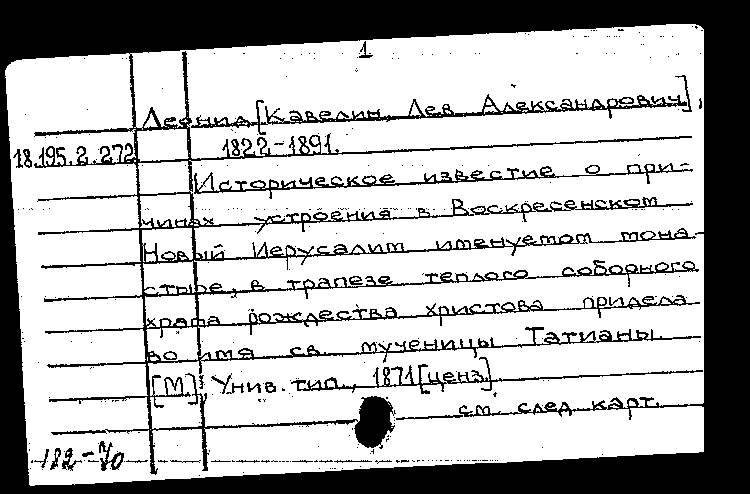 1
Леонид [Кавелин, Лев Александрович],
18.195.2.272 1822-1891.
Историческое известие о при-
чинах устроения в Воскресенском
Новый Иерусалим именуемом мона-
стыре, в трапезе теплого соборного
храма рождества христова придела
во имя св. мученицы Татианы.
[М.], Унив. тип., 1871 [ценз.]
см. след. карт.
182-70